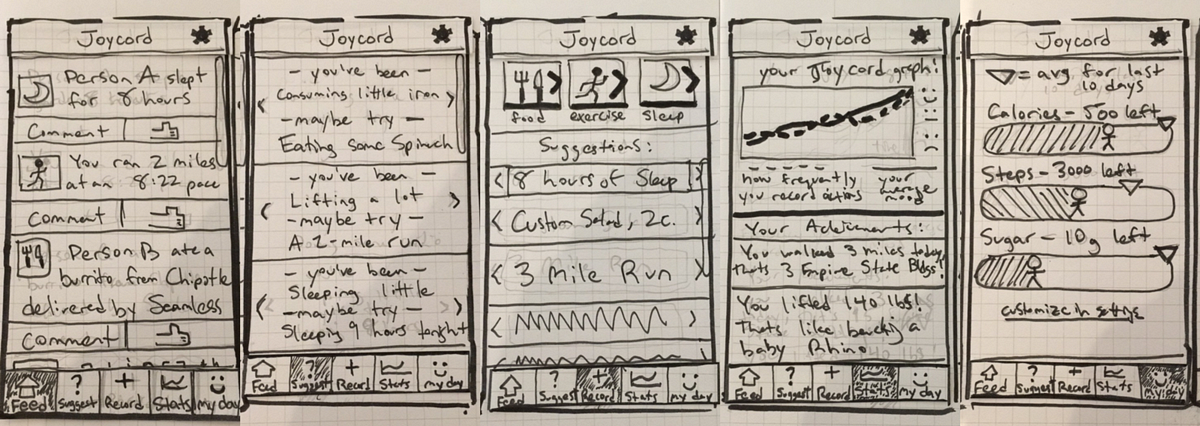 Joycord
Person A slept
for 8 hours
Comment
You ran 2 miles
at an 8:22 pace
Comment
Person B ate a
burrito from Chipotle
delivered by Seamless
Comment
Feed
Suggest
Record
Stats
my day
Joycord
- you've been -
consuming little iron
- maybe try -
Eating some Spinach
- you've been -
Lifting a lot
- maybe try -
A 2-mile run
- you've been -
Sleeping little
- maybe try -
Sleeping 9 hours tonight
Feed
? Suggest
+ Record
Stats
my day
Joycord
food
exercise
sleep
Suggestions:
< 8 hours of Sleep >
< Custom Salad, 2c. >
< 3 Mile Run >
Feed
? Suggest
+ Record
Stats
my day
Joycord
your Joycord graph!
how frequently
you record actions
your
average
mood
Your Achievments:
You walked 3 miles today,
thats 3 Empire State Bldgs!
You lifted 140 lbs!
Thats like benching a
baby Rhino
Feed
? Suggest
+ Record
Stats
my day
Joycord
= avg. for last
10 days
Calories - 500 left
Steps - 3000 left
Sugar - 10g left
customize in settings
Feed
? Suggest
+ Record
Stats
my day